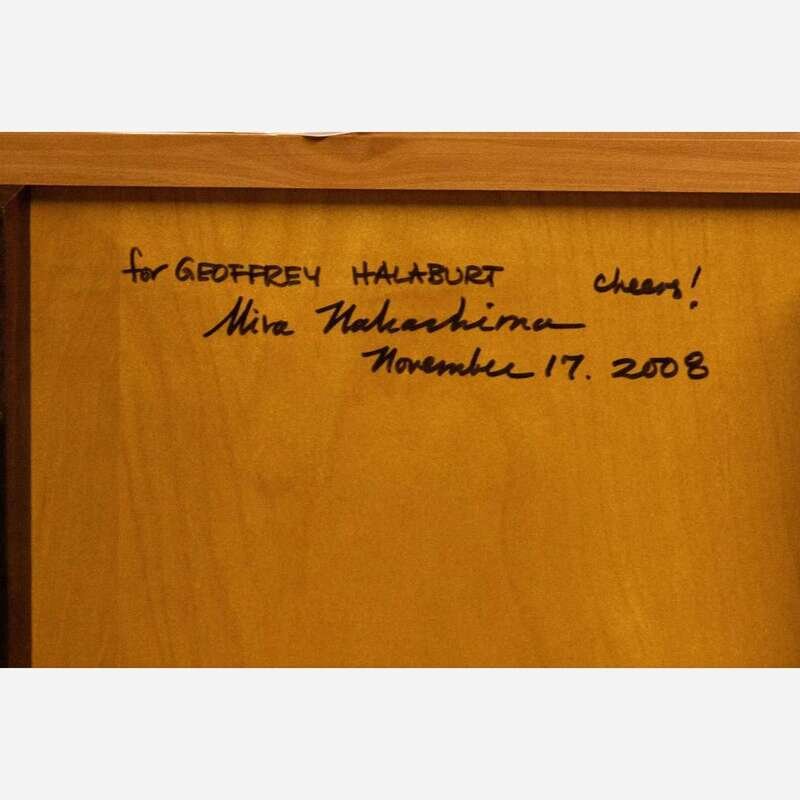 for GEOFFREY HALABURT cheers!
Mira Nakashima
November 17. 2008